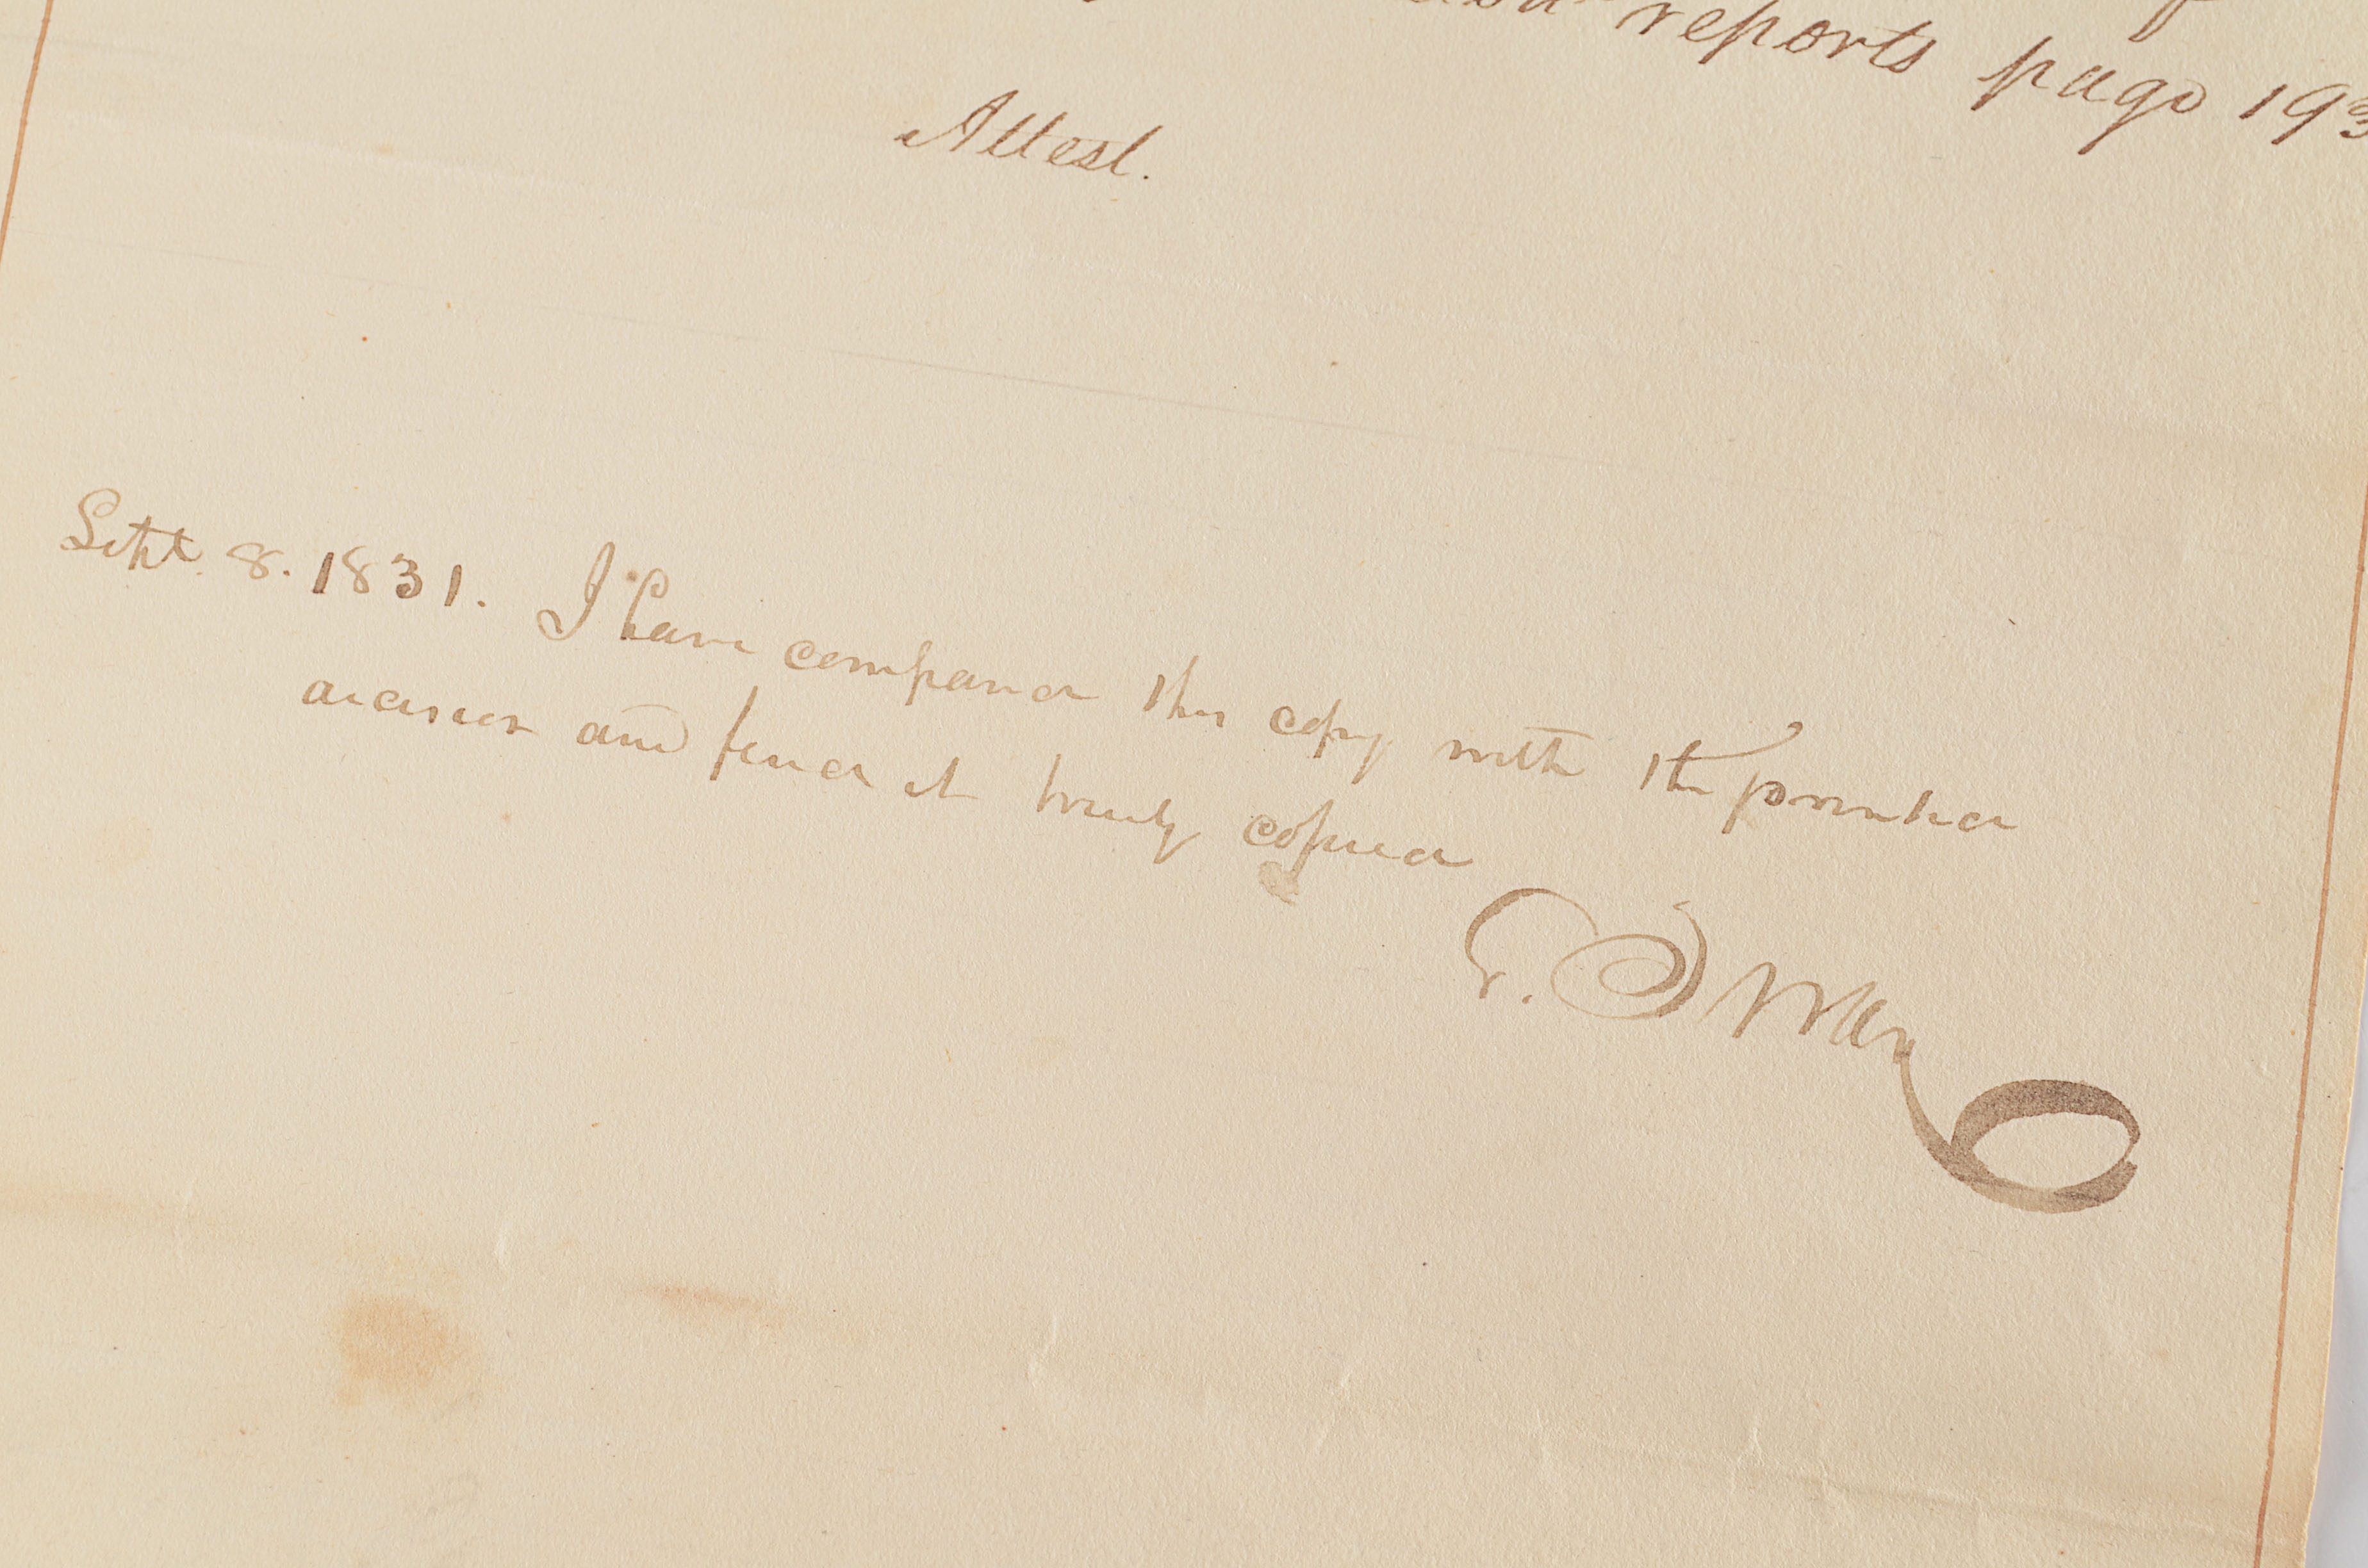 reports page 193
Attest.
Sept. 8. 1831. I have compared this copy with the printed
decision and find it truly copied
E. D.